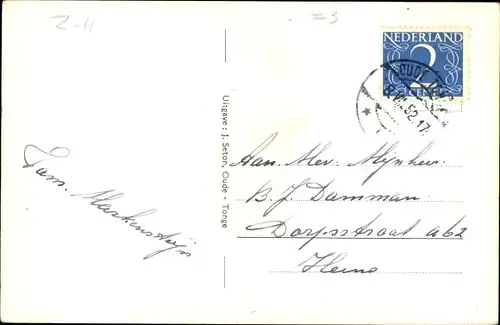 Z-H
=3
NEDERLAND
2
CENT
OUDE
VII.52.17
Uitgave: J. Seton, Oude - Tonge
Fam. Markensteijn
Aan Mev. Mijnheer
B. J. Damman
Dorpsstraat a62
Heino